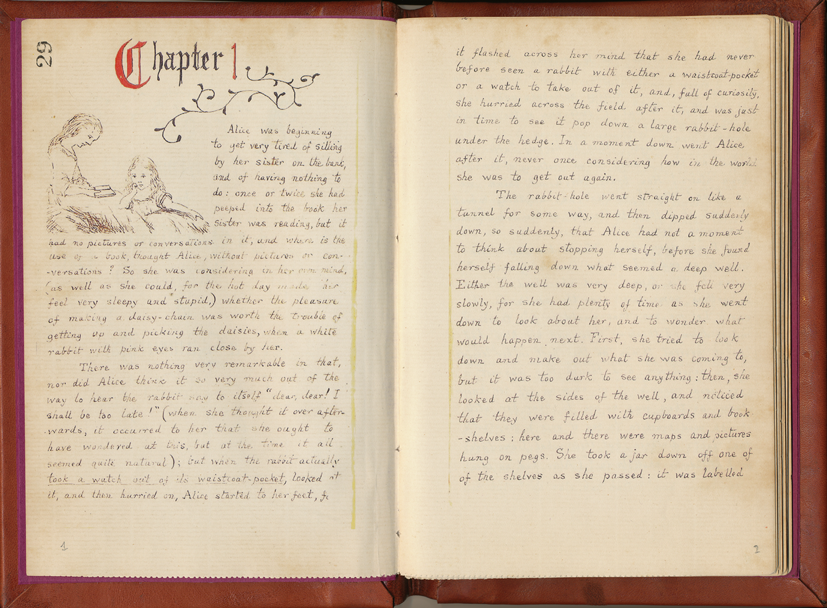 29
Chapter 1
Alice was beginning
to get very tired of sitting
by her sister on the bank,
and of having nothing to
do: once or twice she had
peeped into the book her
sister was reading, but it
had no pictures or conversations in it, and where is the
use of a book, thought Alice, without pictures or con-
-versations? So she was considering in her own mind,
(as well as she could, for the hot day made her
feel very sleepy and stupid,) whether the pleasure
of making a daisy-chain was worth the trouble of
getting up and picking the daisies, when a white
rabbit with pink eyes ran close by her.
There was nothing very remarkable in that,
nor did Alice think it so very much out of the
way to hear the rabbit say to itself "dear, dear! I
shall be too late!" (when she thought it over after-
-wards, it occurred to her that she ought to
have wondered at this, but at the time it all
seemed quite natural); but when the rabbit actually
took a watch out of its waistcoat-pocket, looked at
it, and then hurried on, Alice started to her feet, for
1
it flashed across her mind that she had never
before seen a rabbit with either a waistcoat-pocket
or a watch to take out of it, and, full of curiosity,
she hurried across the field after it, and was just
in time to see it pop down a large rabbit-hole
under the hedge. In a moment down went Alice
after it, never once considering how in the world
she was to get out again.
The rabbit-hole went straight on like a
tunnel for some way, and then dipped suddenly
down, so suddenly, that Alice had not a moment
to think about stopping herself, before she found
herself falling down what seemed a deep well.
Either the well was very deep, or she fell very
slowly, for she had plenty of time as she went
down to look about her, and to wonder what
would happen next. First, she tried to look
down and make out what she was coming to,
but it was too dark to see anything: then, she
looked at the sides of the well, and noticed
that they were filled with cupboards and book
-shelves: here and there were maps and pictures
hung on pegs. She took a jar down off one of
of the shelves as she passed: it was labelled
2